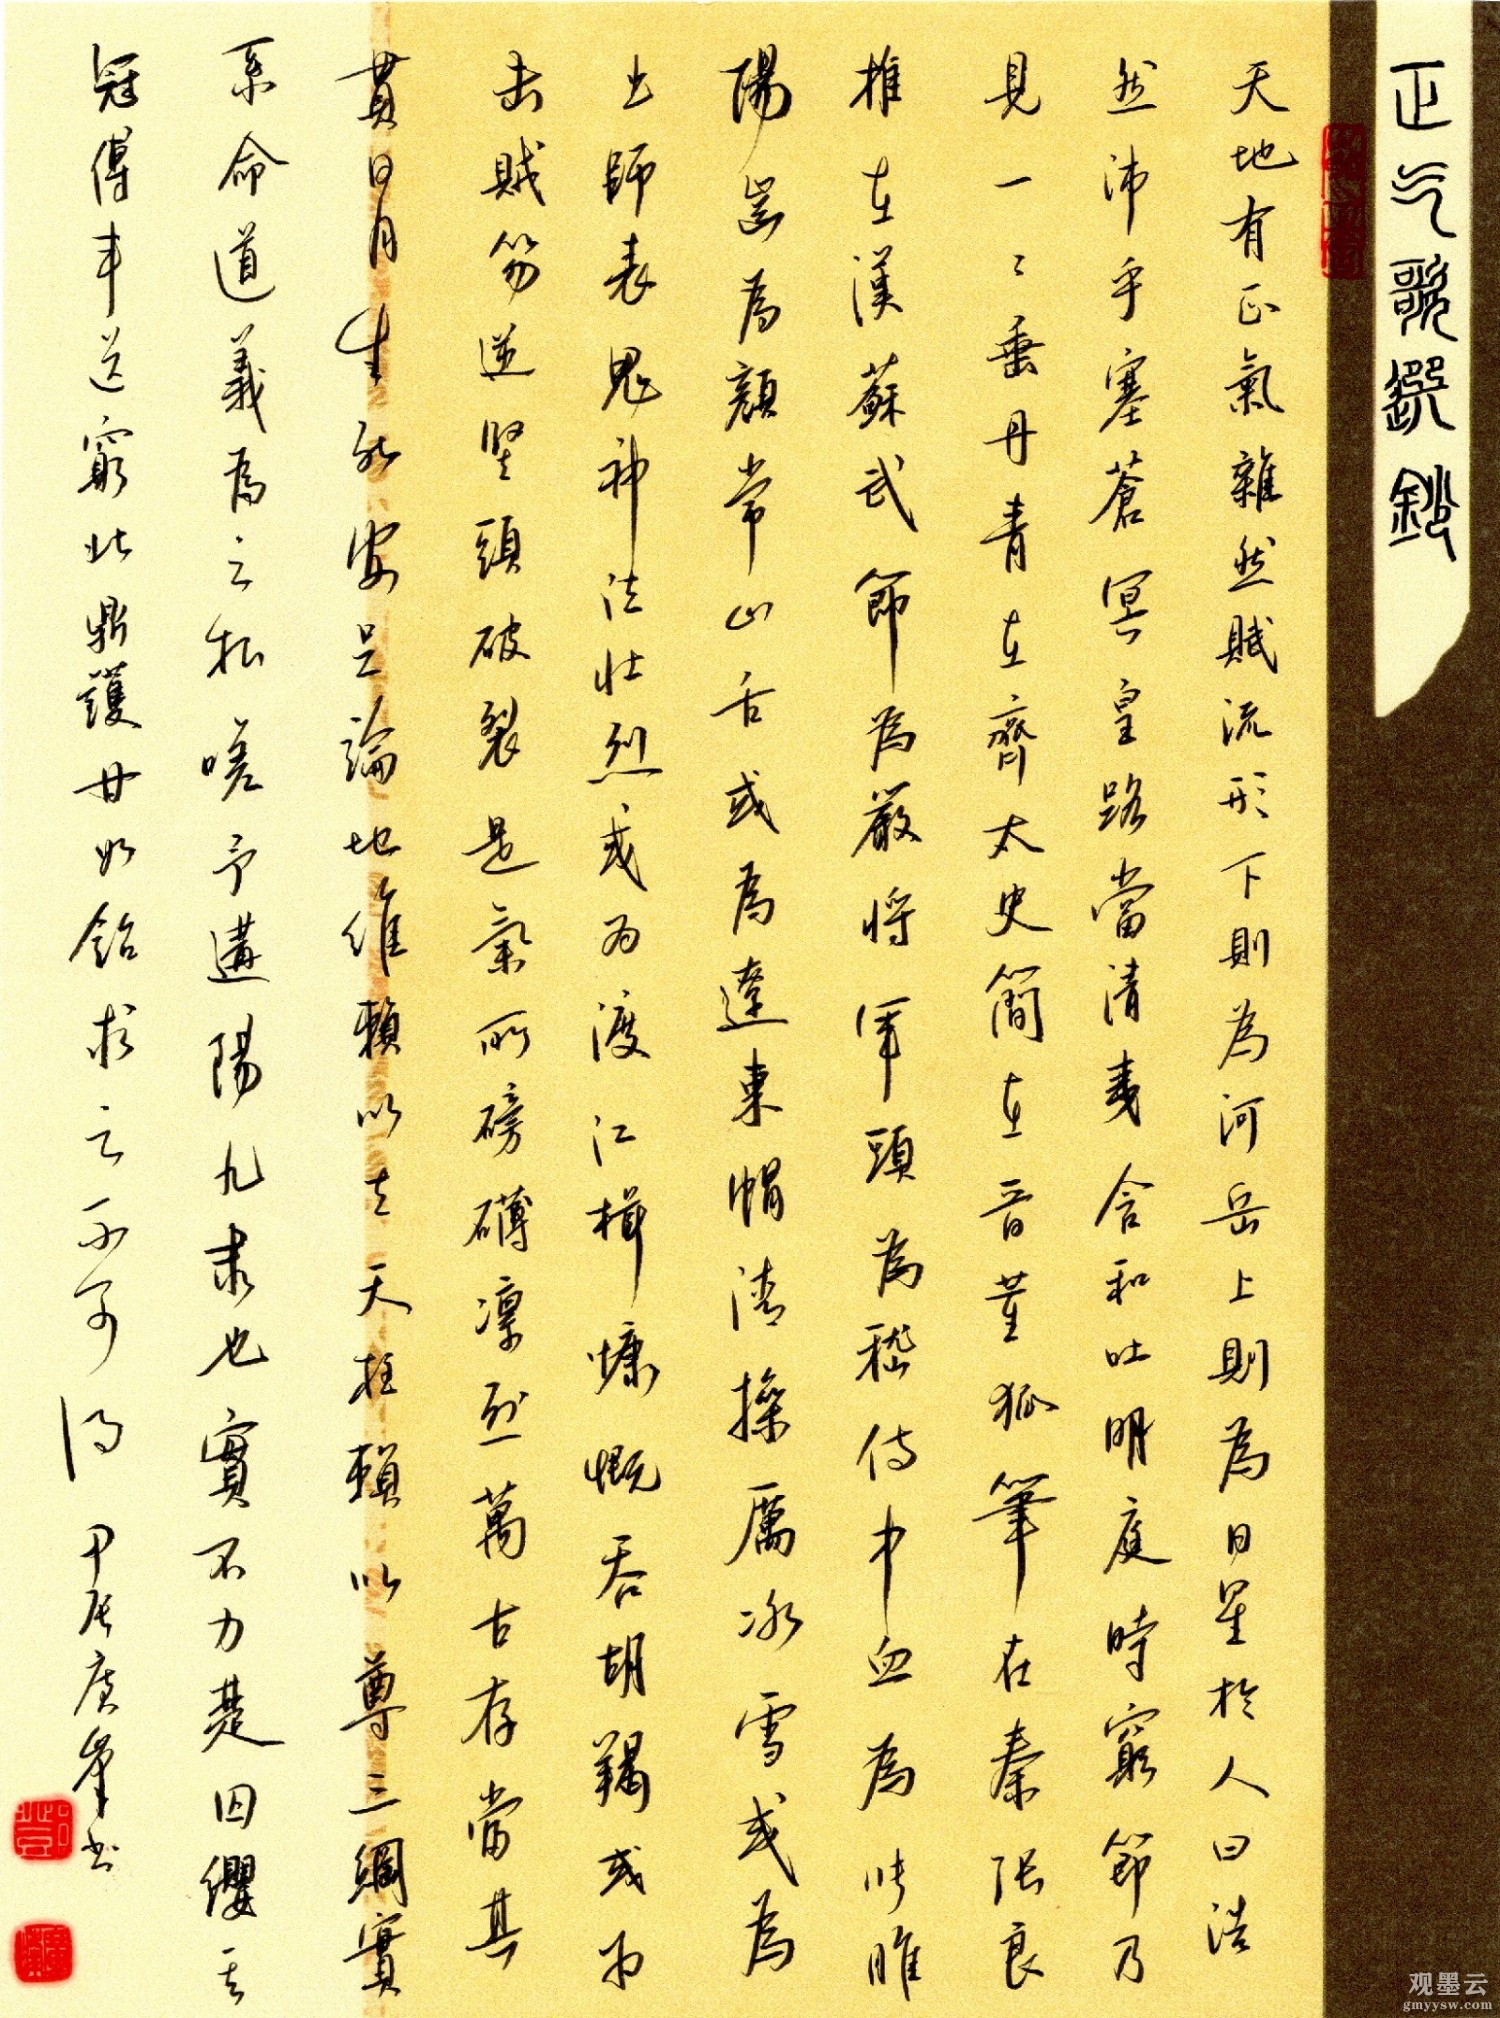 正气歌選鈔
天地有正氣雜然賦流形下則為河岳上則為日星於人曰浩
然沛乎塞蒼冥皇路當清夷含和吐明庭時窮節乃
見一〻垂丹青在齊太史簡在晉董狐筆在秦張良
椎在漢蘇武節為嚴將軍頭為嵇侍中血為張睢
陽齒為顏常山舌或為遼東帽清操厲冰雪或為
出師表鬼神泣壯烈或為渡江楫慷慨吞胡羯或為
击賊笏逆竖頭破裂是氣所磅礴凜烈萬古存當其
貫日月生死安足論地維賴以立天柱賴以尊三綱實
系命道義為之根嗟予遘陽九隶也實不力楚囚纓其
冠傳車送窮北鼎鑊甘如飴求之不可得 甲辰广峯书
观墨云
gmyysw.com